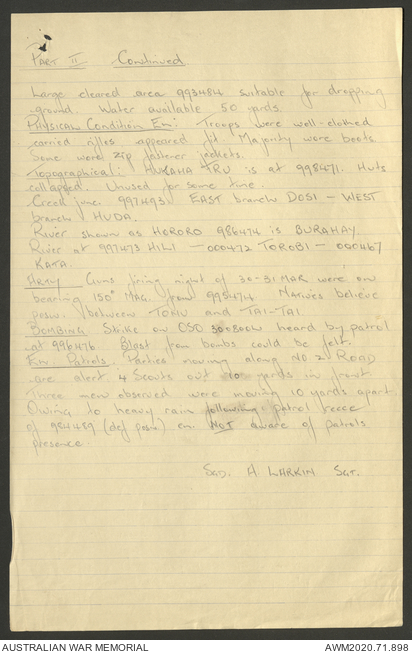 PART II Continued
Large cleared area 993484 suitable for dropping
ground. Water available 50 yards.
PHYSICAL CONDITION EN: Troops were well-clothed
carried rifles appeared fit. Majority wore boots.
Some wore zip fastener jackets.
Topographical: HUKAHA TRU is at 998471. Huts
collapsed. Unused for some time.
Creek junc. 997493. EAST branch DOSI - WEST
branch HUDA.
River shown as HORORO 986474 is BURAHAY
River at 997473 HILI - 000472 TOROBI - 000467
KATA.
ARMY Guns firing night of 30-31 MAR were on
bearing 150° MAG. from 995474. Natives believe
posn. between TOKU and TAI-TAI
BOMBING Strike on 050 300800K heard by patrol
at 996476 Blast from bombs could be felt.
En. Patrols. Parties moving along NO 2 ROAD
are alert 4 Scouts out 10 yards in front
Three men observed were moving 10 yards apart.
Owing to heavy rain following patrol recce
of 984489 (def posn) en. NOT aware of patrols
presence.
SGD. A LARKIN SGT.
AUSTRALIAN WAR MEMORIAL
AWM2020.71.898